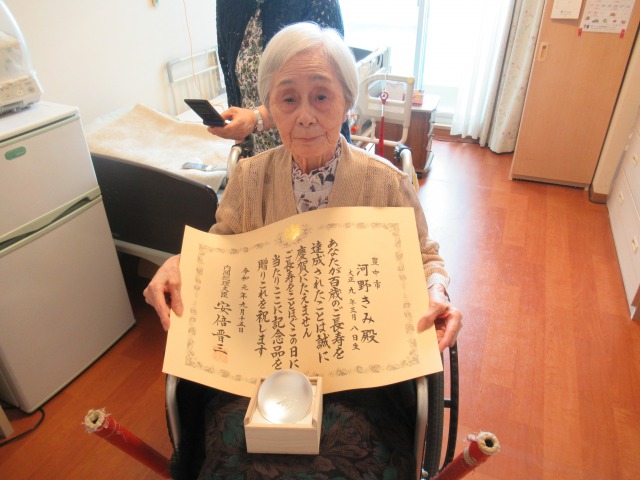 豊中市
河野きみ殿
大正九年三月八日生
あなたが百歳のご長寿を
達成されたことは誠に
慶賀にたえません
ご長寿をことほぐこの日に
当たりここに記念品を
贈りこれを祝します
令和元年九月十五日
内閣総理大臣 安倍晋三